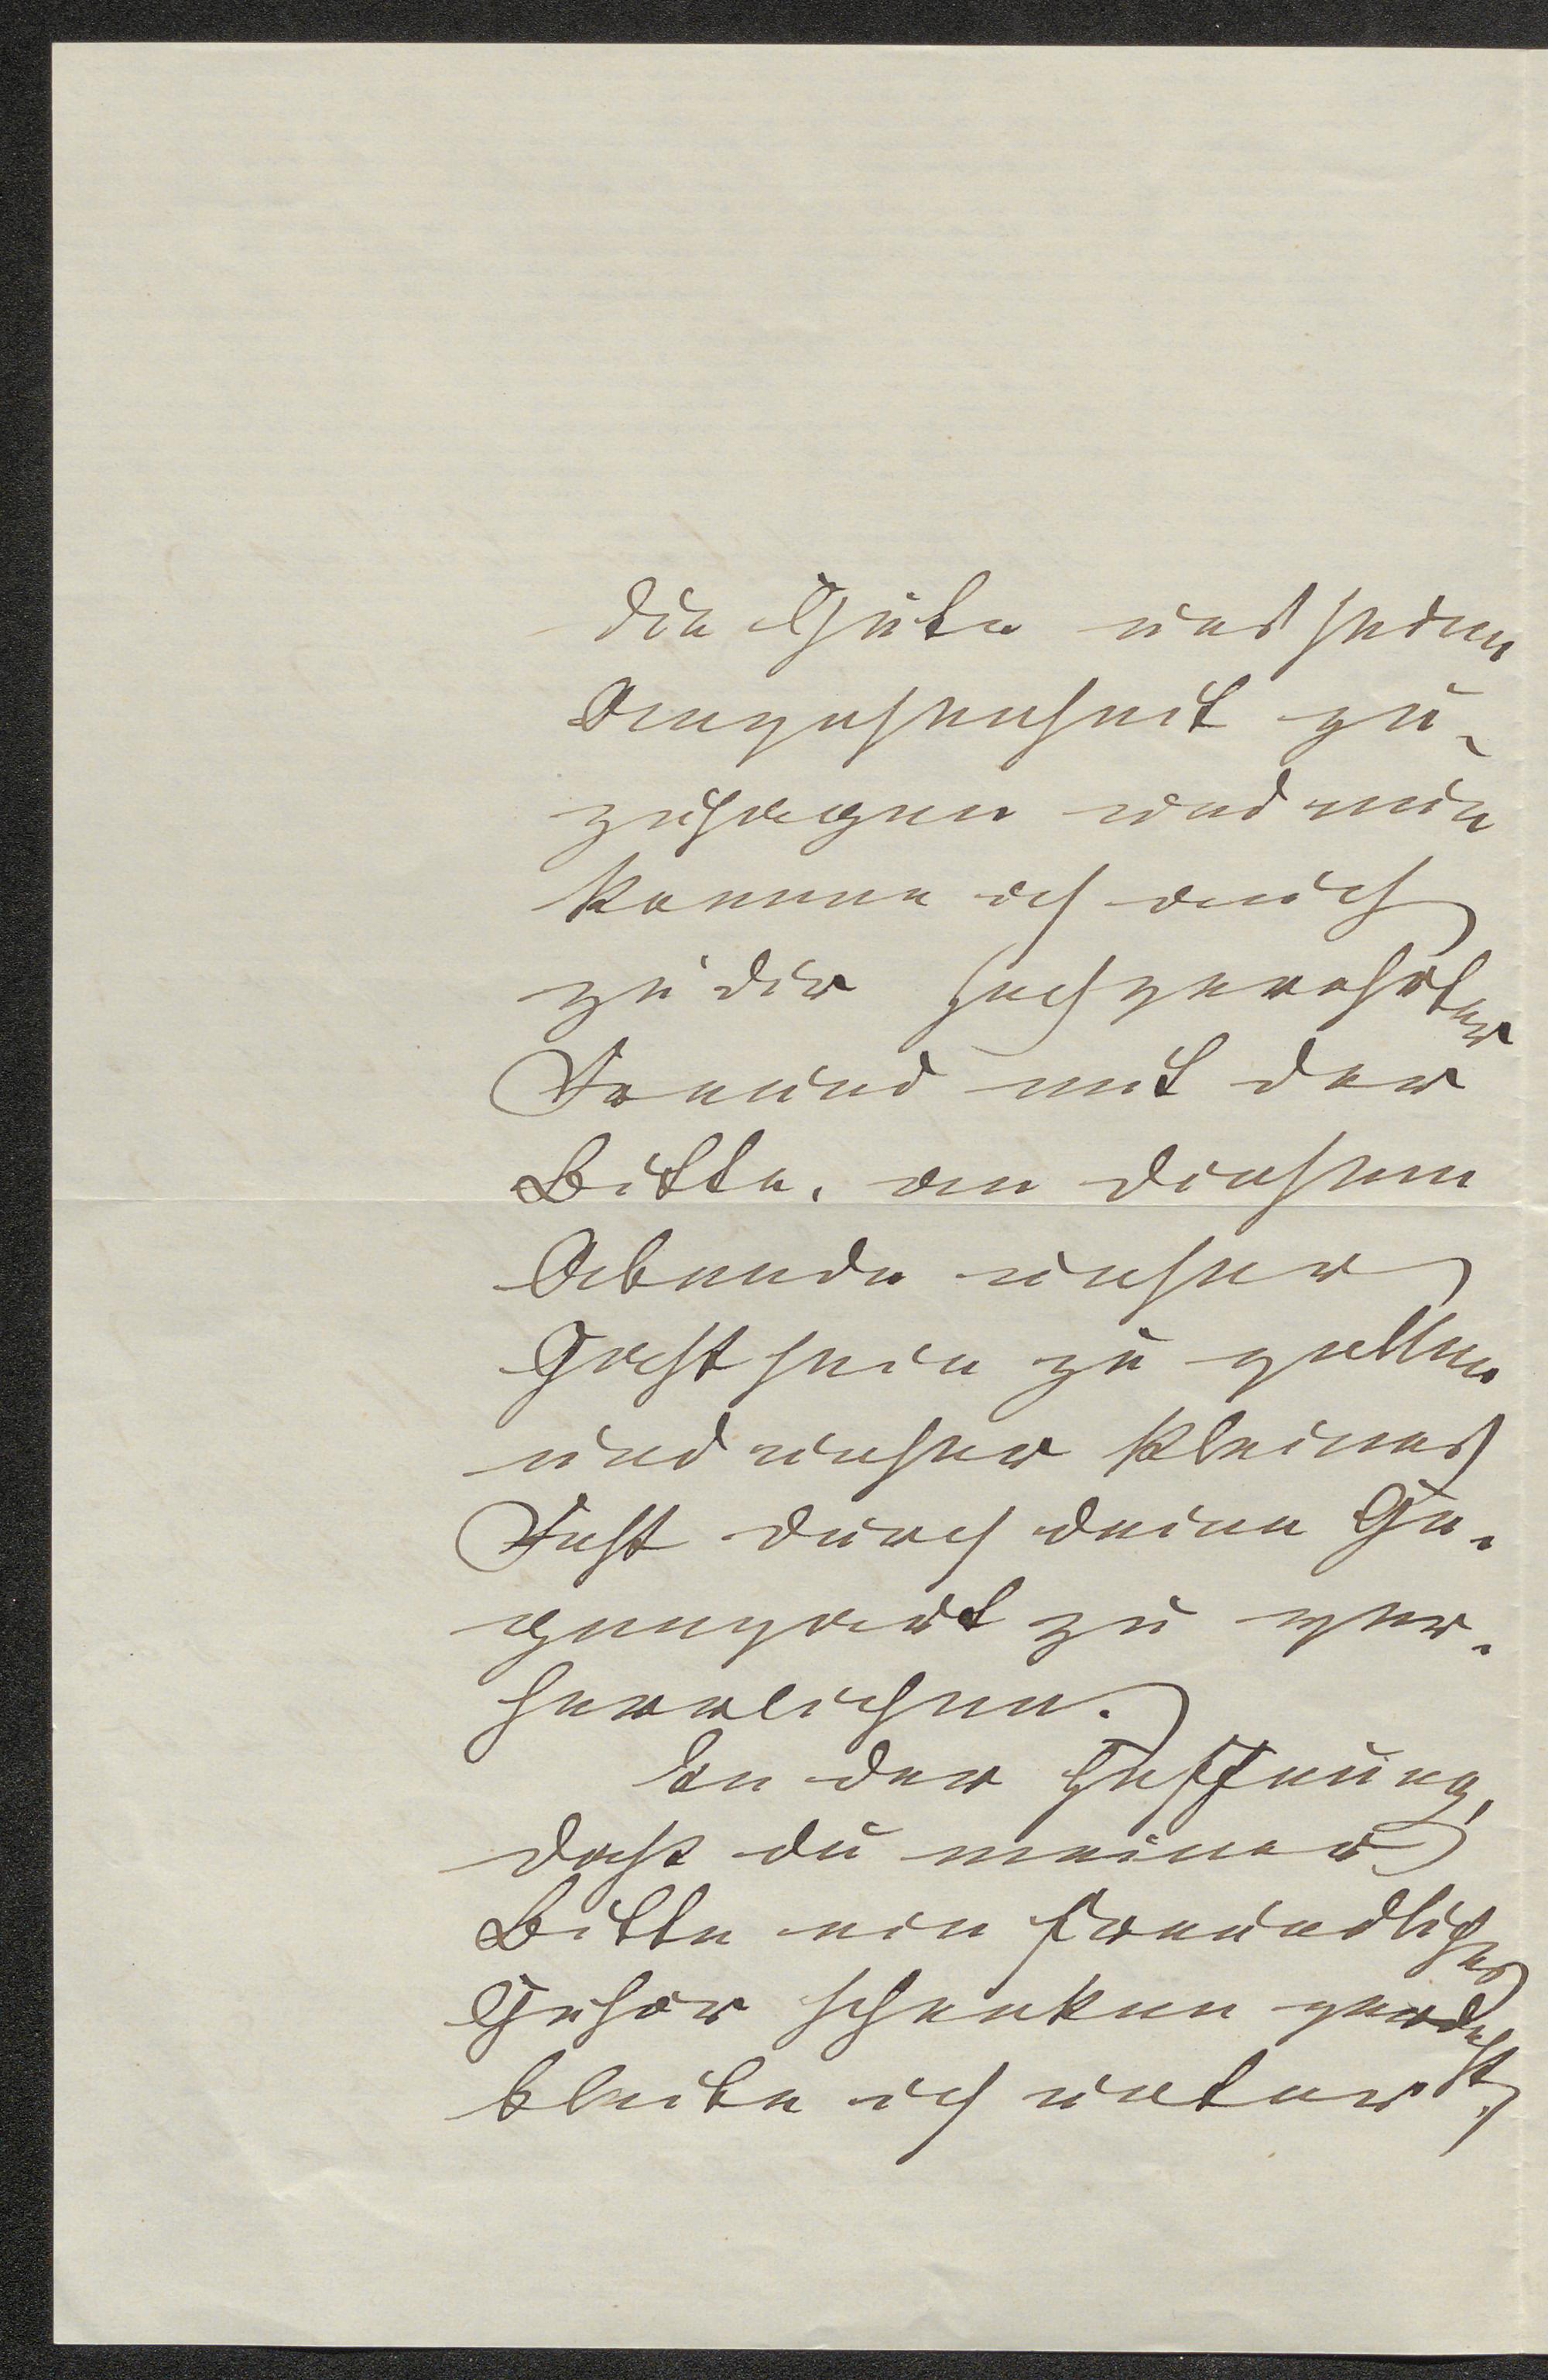 die Güte uns seine
Anwesenheit zu-
zusagen und nun
komme ich auch
zu dir hochverehrter
Freund mit der
Bitte, an diesem
Abende unser
Gast sein zu wollen
und unser kleines
Fest durch deine Ge-
genwart zu ver-
herrlichen.
In der Hoffnung,
daß du meiner
Bitte ein freundliches
Gehör schenken werdest,
bleibe ich unter